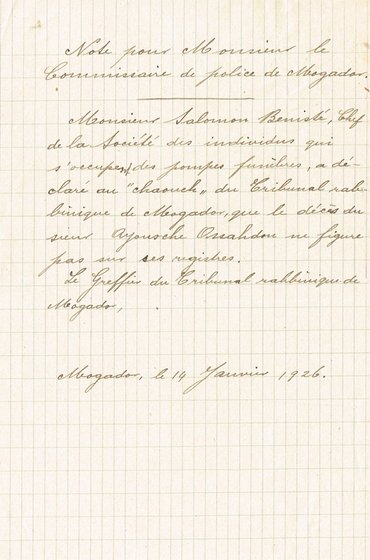 Note pour Monsieur le
Commissaire de police de Mogador.
Monsieur Salomon Benisté, Chef
de la Société des individus qui
s'occupent des pompes funèbres, a dé-
claré au "chaouch" du Tribunal rab-
binique de Mogador, que le décès du
sieur Ayousche Ossahdon ne figure
pas sur ses registres.
Le Greffier du Tribunal rabbinique de
Mogador,
Mogador, le 14 Janvier 1926.